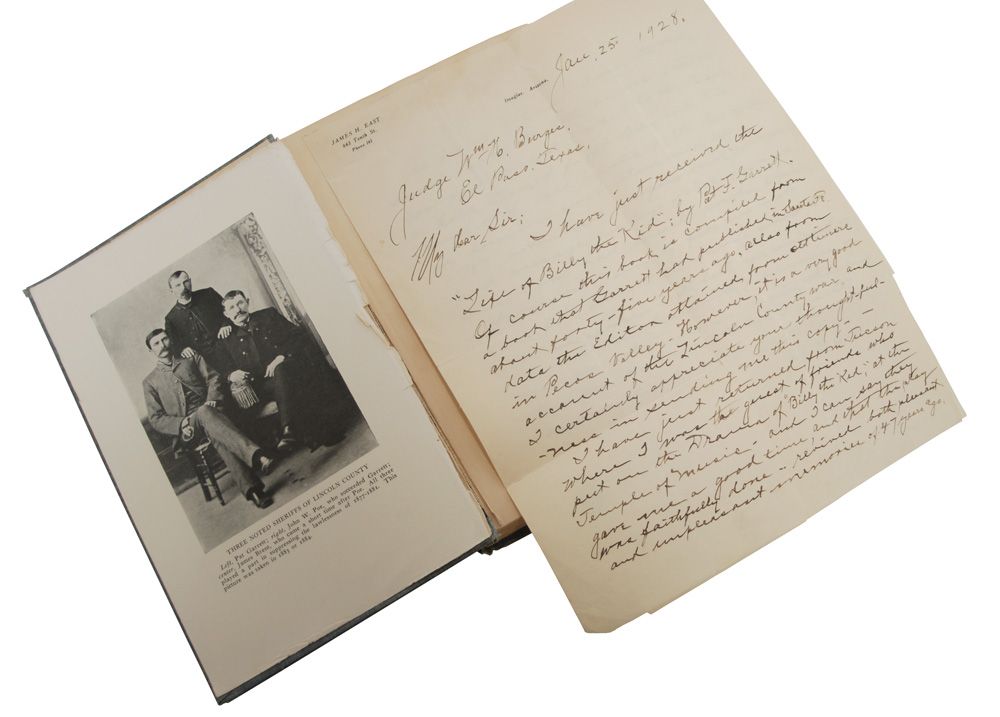 THREE NOTED SHERIFFS OF LINCOLN COUNTY
Left, Pat Garrett; right, John W. Poe, who succeeded Garrett;
center, James Brent, who came a short time after Poe. All three
played a part in suppressing the lawlessness of 1877-1881. This
picture was taken in 1883 or 1884.
JAMES H. EAST
Tenth St.
Phone
Douglas, Arizona,
Jan, 25 1928.
Judge Wm H. Burges,
El Paso, Texas,
My dear Sir; I have just received the
"Life of Billy the Kid"; by Pat F. Garrett.
Of course this book is compiled from
a book that Garrett had published, in Santa Fe
about forty-five years ago, allso from
data the Editor obtained from oldtimers
in Pecos Valley - However, it is a very good
account of the Lincoln County war, and
I certainly appreciate your thoughtful-
-ness in sending me this copy. -
I have just returned from Tucson
where I was the guest of friends who
put on the Drama of "Billy the Kid", at the
Temple of Music - and I can say they
gave me a good time and that the play
was faithfully done - revived both pleasant
and unpleasant memories of 47 years ago.